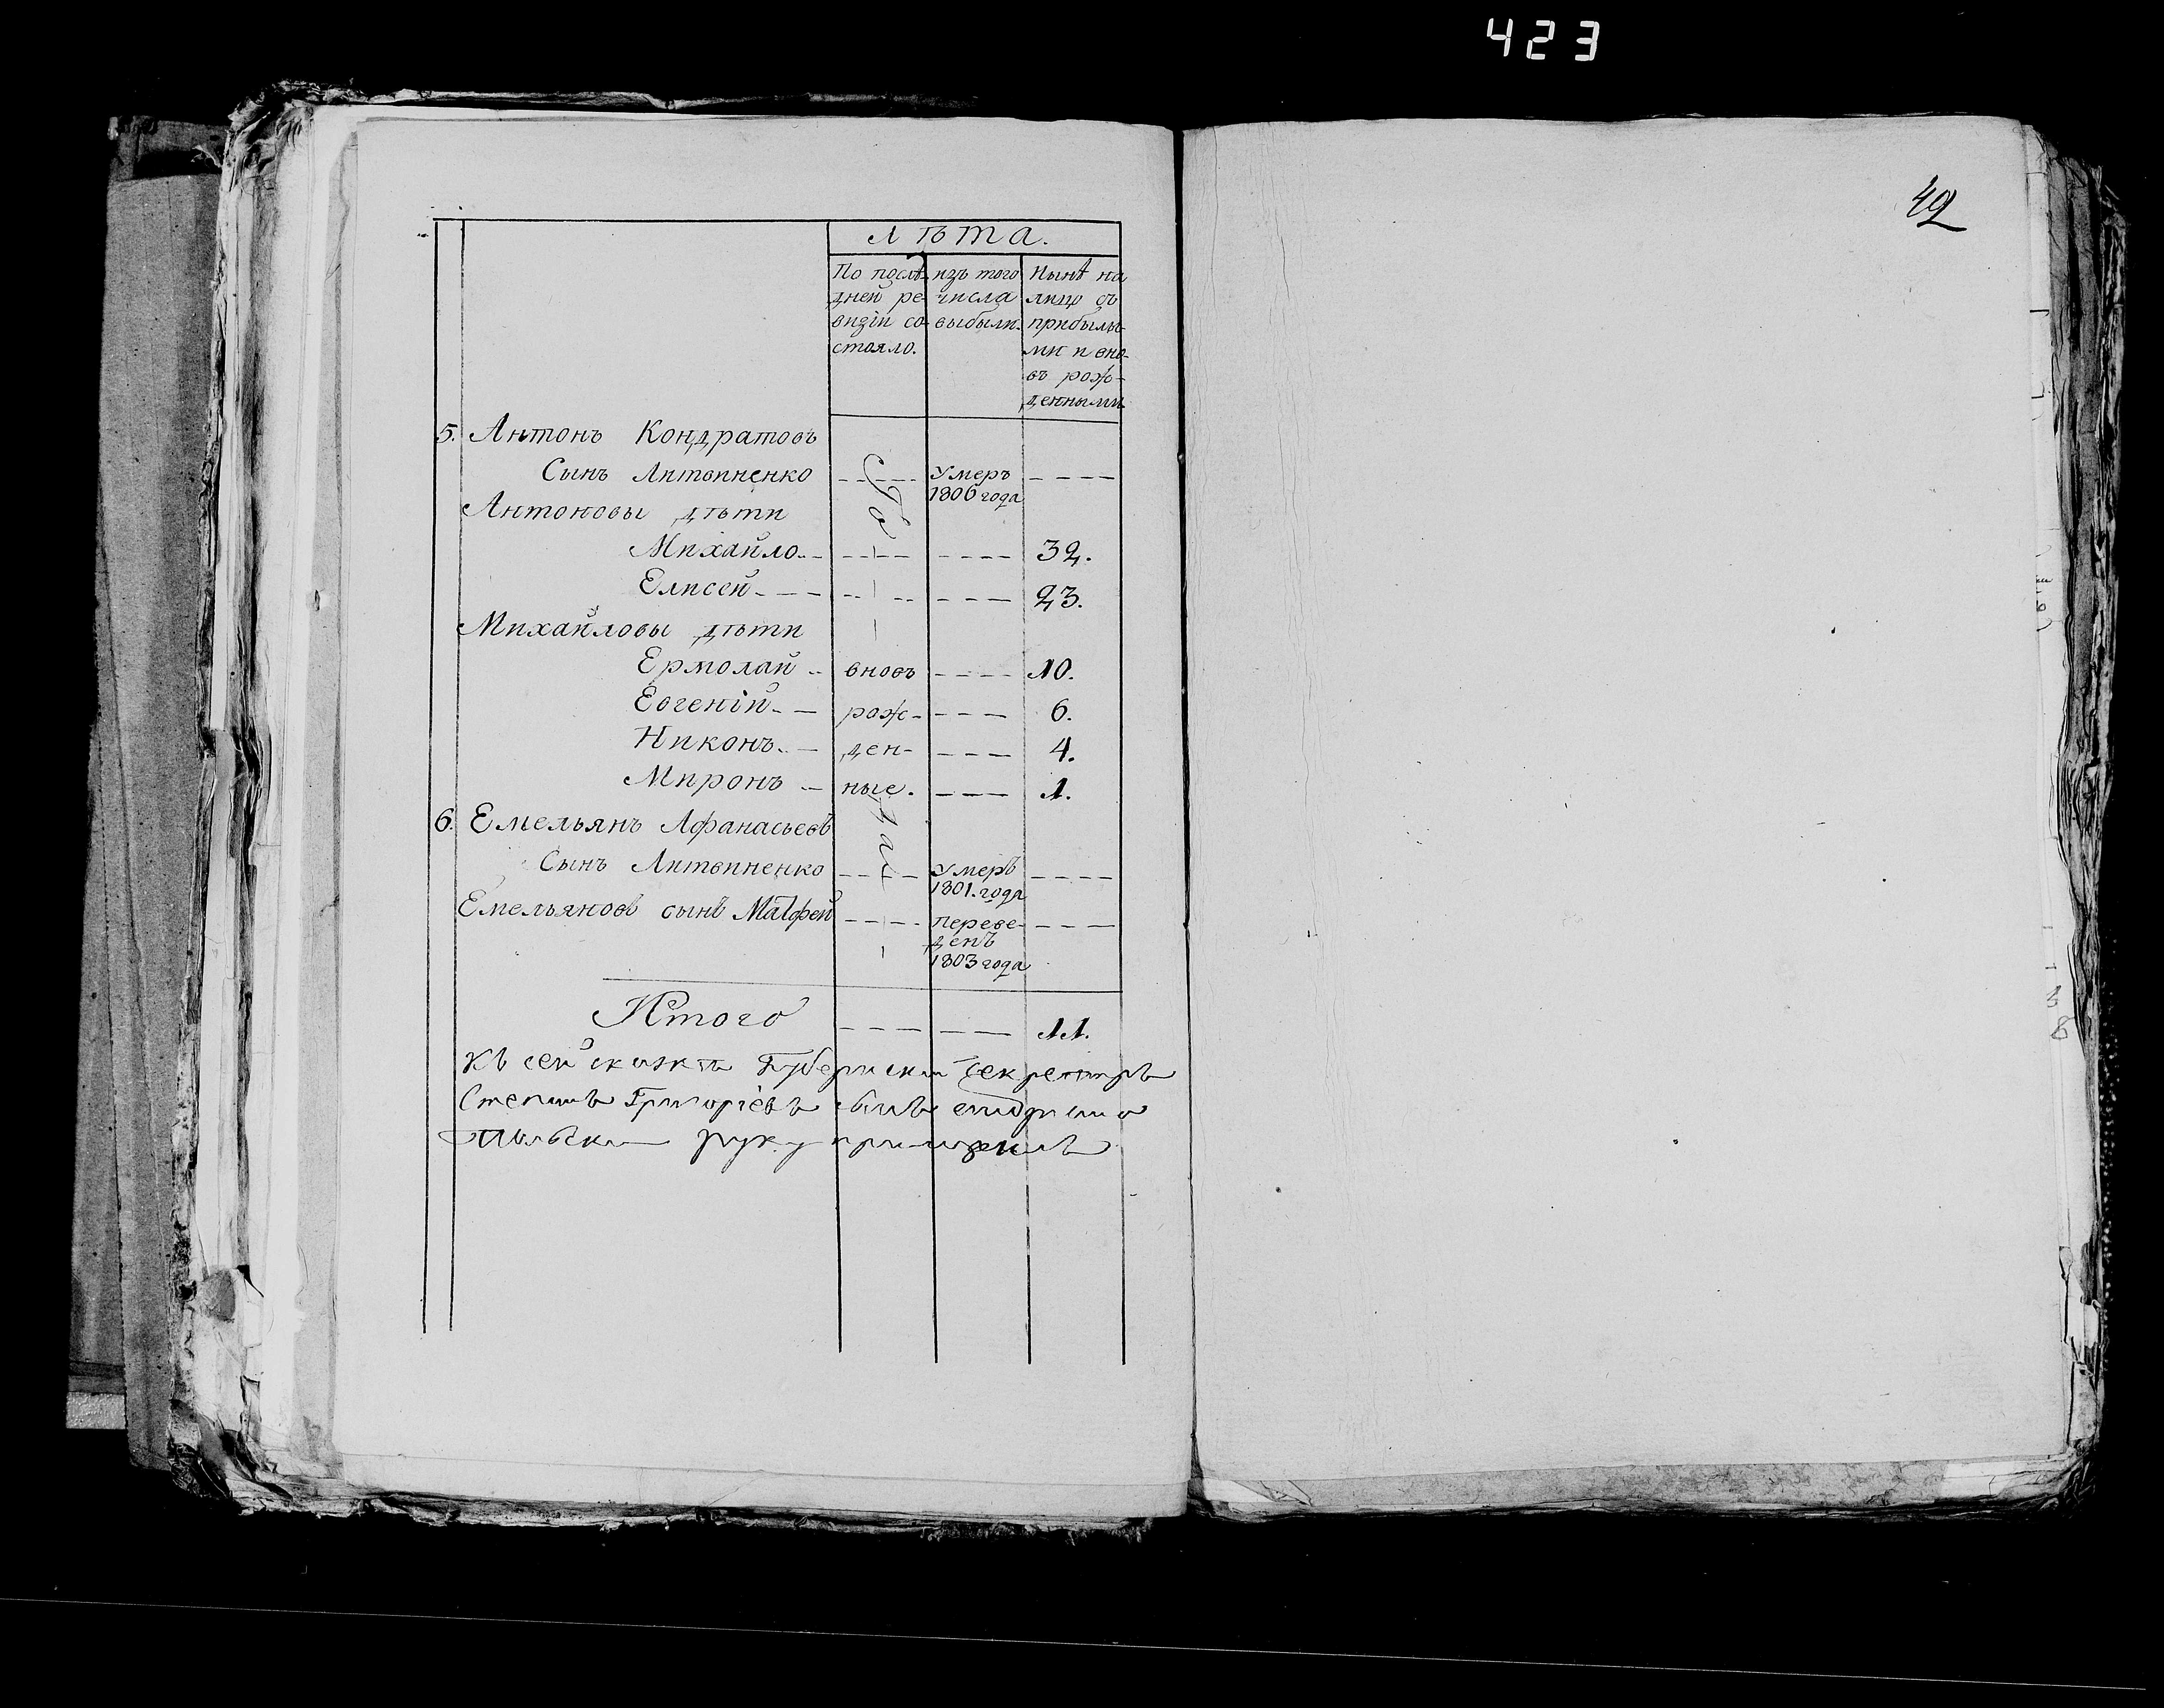 423
42
Лѣта.
По послѣ- изъ того Нынѣ на
дней ре- числа лицо съ
визіи со- выбыли. прибылы-
стояло. ми и вно-
въ рож-
денными
5. Антонъ Кондратовъ
Сынъ Литвиненко Умеръ
1806 года
Антоновы дѣти
Михайло 32.
Елисей 23.
Михайловы дѣти
Ермолай вновь 10.
Евгеній рож- 6.
Никонъ ден- 4.
Миронъ ные. 1.
6. Емельянъ Афанасьевъ
Сынъ Литвиненко Умеръ
1801. года
Емельяновъ сынъ Матфей переве-
денъ
1803 года
Итого 11.
Къ сей сказкѣ Губернскій секретарь
Степанъ Григоріевъ сынъ
руку приложилъ